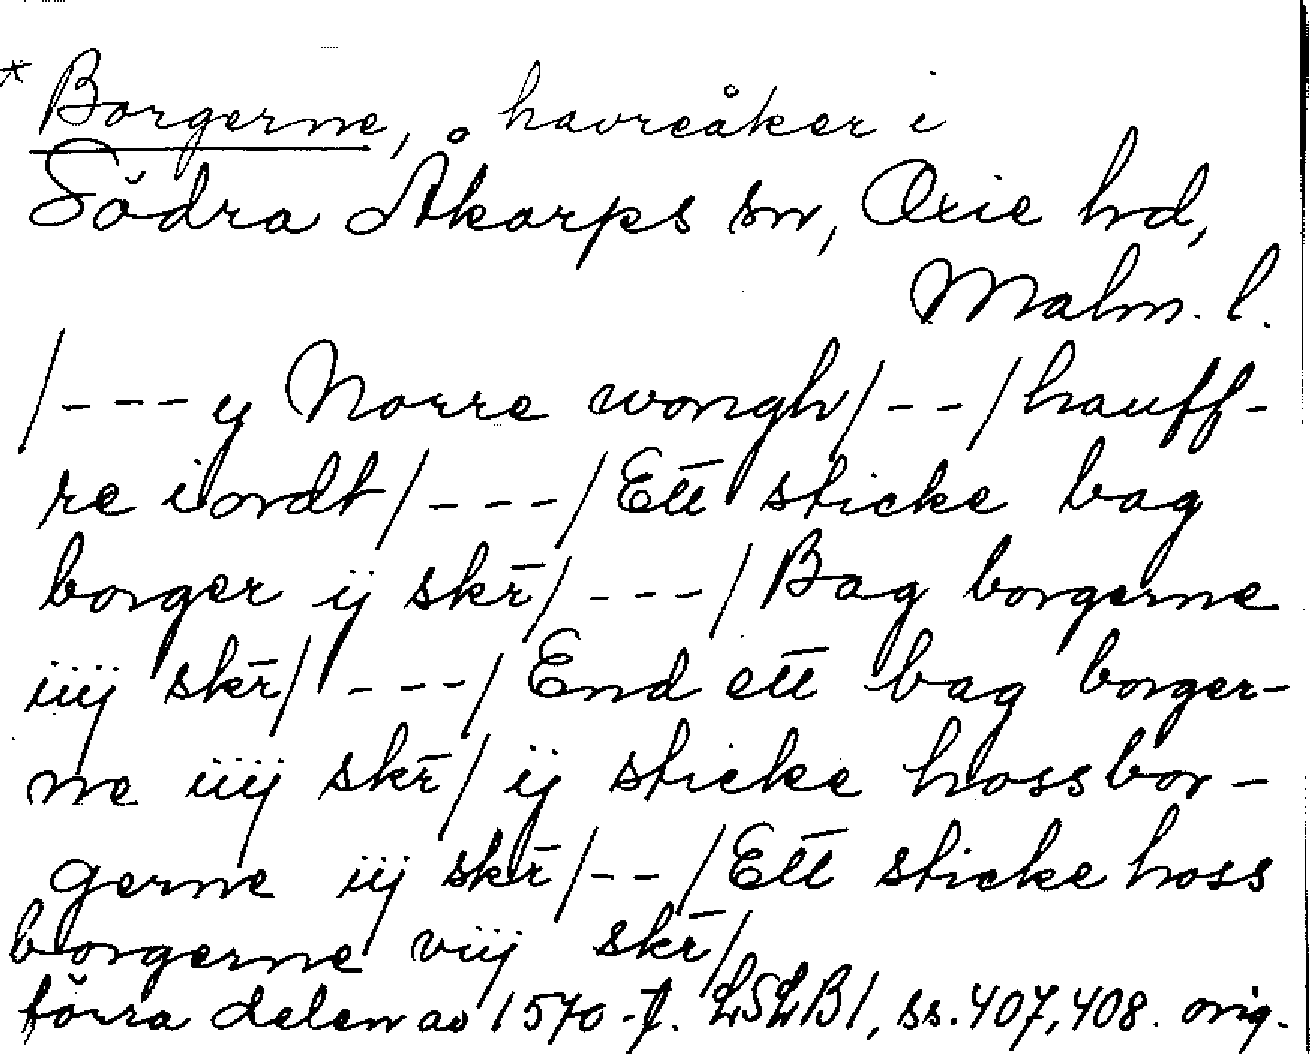 * Borgerne, havreåker i
Södra Åkarps sn, Oxie hd,
Malm. l.
/---y Norre wongh/--/hauff-
re iordt/---/Ett sticke bag
borger ij skr̄/---/Bag borgerne
iiij skr̄/---/End ett bag borger-
ne iiij skr̄/ij sticke hoss bor-
gerne iij skr̄/--/Ett sticke hoss
borgerne viij skr̄/
förra delen av 1570-t. LSLB1, ss. 407, 408. orig.